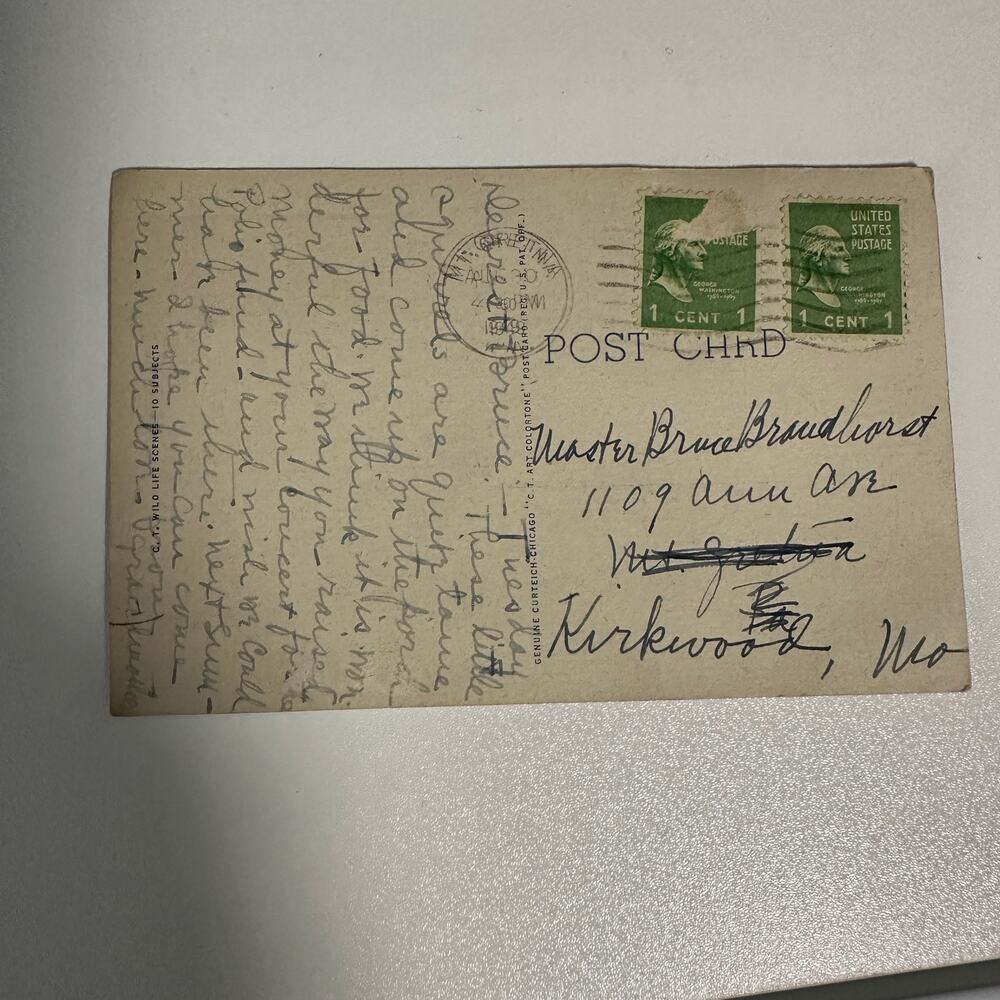 Dear Bruce - Tuesday
These little
squirrels are quite tame
and come up on the porch
for food. We think it is won-
derful the way you raised
money at your concert for
Polio fund - and wish we could
have been there. Next Sum-
mer I hope you can come
here - much love
C. T. WILD LIFE SCENES—10 SUBJECTS
GENUINE CURTEICH-CHICAGO "C. T. ART COLORTONE" POST CARD (REG. U. S. PAT. OFF.)
MT. GRETNA
AUG 30
PM
POSTAGE
GEORGE
WASHINGTON
1 CENT 1
UNITED
STATES
POSTAGE
GEORGE
1 CENT 1
POST CARD
Master Bruce Brandhorst
1109 Ann Ave
Mt. Gretna
Pa
Kirkwood, Mo